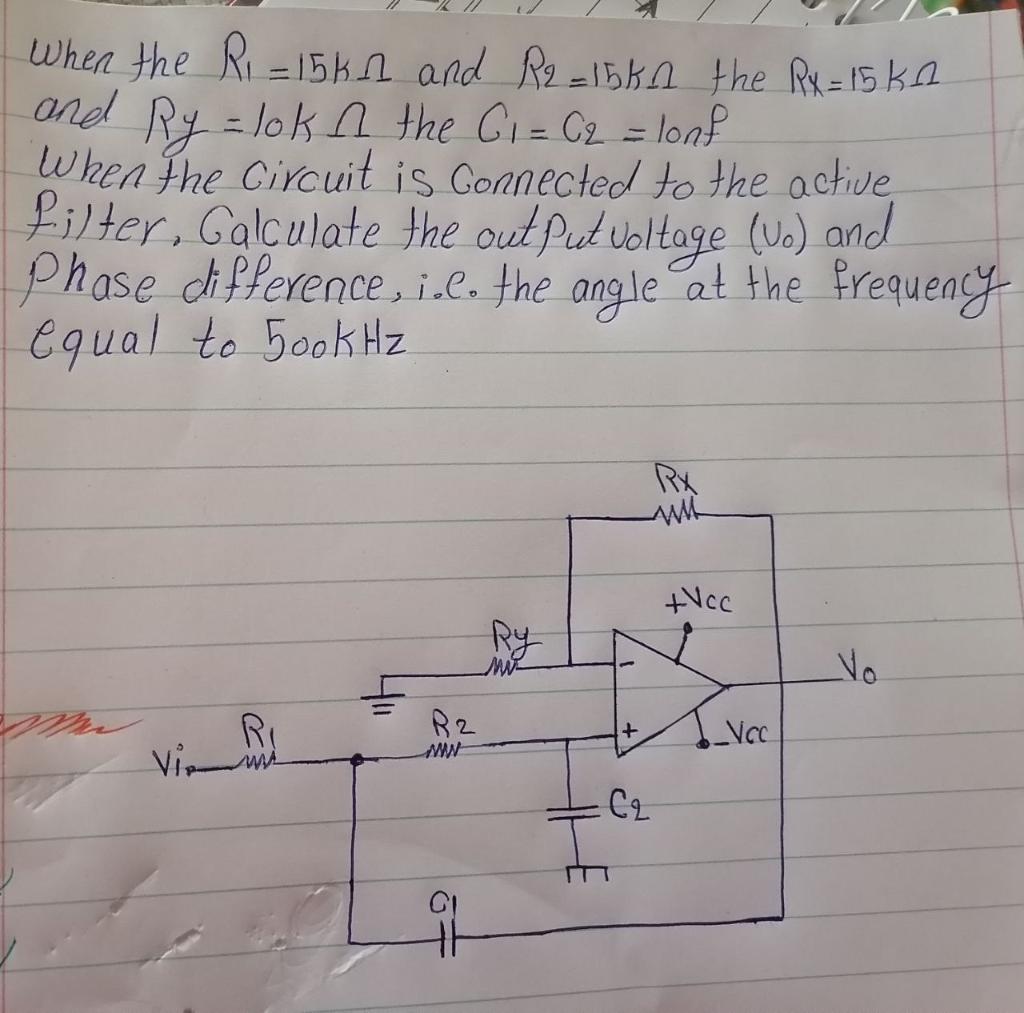 When the R1 = 15kΩ and R2 = 15kΩ the Rx = 15kΩ
and Ry = 10kΩ the C1 = C2 = 10nf
When the Circuit is Connected to the active
filter, Calculate the output voltage (Vo) and
Phase difference, i.e. the angle at the frequency
equal to 500kHz
Rx
+Vcc
Ry
Vo
R1
R2
-Vcc
Vi
C2
C1